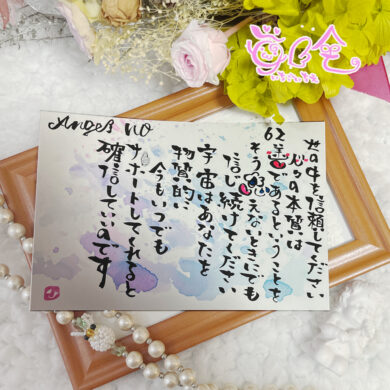 Angel no
62
世の中を信頼してください
人々の本質は
善であるということを
そう思えないときでも
信じ続けてください
宇宙はあなたを
物質的に
今もいつでも
サポートしてくれると
確信していいのです